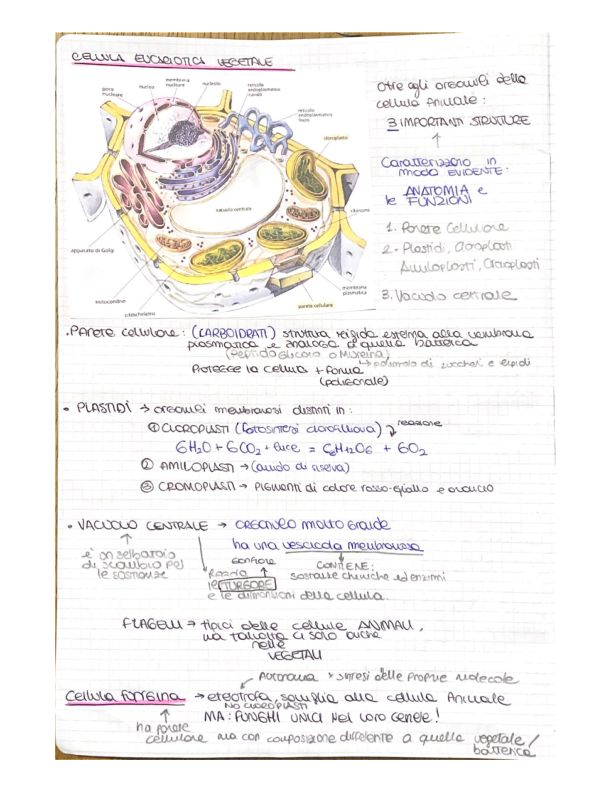 CELLULA EUCARIOTICA VEGETALE
poro nucleare
nucleo
membrana nucleare
nucleolo
reticolo endoplasmatico ruvido
reticolo endoplasmatico liscio
cloroplasti
ribosomi
vacuolo centrale
apparato di Golgi
mitocondrio
citoscheletro
membrana plasmatica
parete cellulare
Oltre agli organuli della
cellula Animale:
3 IMPORTANTI STRUTTURE
Caratterizzano in
modo EVIDENTE:
ANATOMIA e
le FUNZIONI
1. Parete Cellulare
2. Plastidi, Cloroplasti
Amiloplasti, Cromoplasti
3. Vacuolo centrale
• PARETE cellulare: (CARBOIDRATI) struttura rigida esterna alla membrana
plasmatica e analoga a quella batterica
(Peptidoglicano o Mureina)
↳ polimero di zuccheri e lipidi
PROTEGGE la cellula + forma
(poligonale)
• PLASTIDI → organuli membranosi distinti in:
① CLOROPLASTI (fotosintesi clorofilliana) reazione
6H2O + 6CO2 + luce = C6H12O6 + 6O2
② AMILOPLASTI → (amido di riserva)
③ CROMOPLASTI → PIGMENTI di colore rosso-giallo e arancio
• VACUOLO CENTRALE → ORGANULO molto grande
ha una vescicola membranosa
è un serbatoio
di scambio per
le sostanze
gonfiore
Regola
le TURGORE
e le dimensioni della cellula.
CONTIENE:
sostanze chimiche ed enzimi
FLAGELLI → tipici delle cellule ANIMALI,
ma talvolta ci sono anche
nelle
VEGETALI
Autonoma × sintesi delle proprie molecole
Cellula Fungina → eterotrofa, somiglia alla cellula Animale
NO CLOROPLASTI
MA: FUNGHI UNICI nel loro genere!
ha parete
cellulare ma con composizione differente a quella vegetale/
batterica